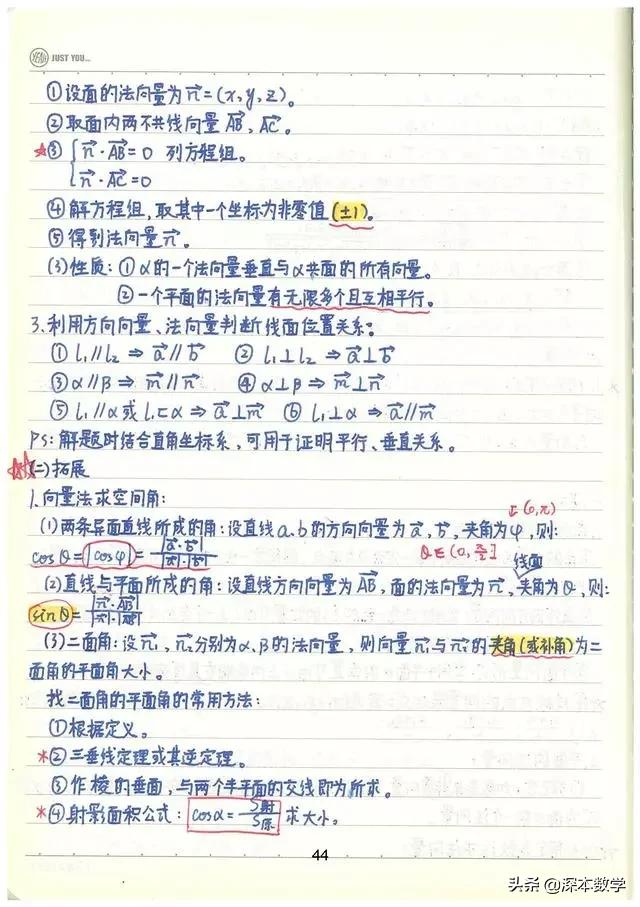 YEAH JUST YOU...
①设面的法向量为n⃗=(x,y,z)。
②取面内两不共线向量AB⃗,AC⃗。
★③{n⃗·AB⃗=0 列方程组。
n⃗·AC⃗=0
④解方程组,取其中一个坐标为非零值(±1)。
⑤得到法向量n⃗。
(3)性质:①α的一个法向量垂直与α共面的所有向量。
②一个平面的法向量有无限多个且互相平行。
3.利用方向向量、法向量判断线面位置关系:
①l₁∥l₂⇒a⃗∥b⃗ ②l₁⊥l₂⇒a⃗⊥b⃗
③α∥β⇒m⃗∥n⃗ ④α⊥β⇒m⃗⊥n⃗
⑤l₁∥α或l₁⊂α⇒a⃗⊥m⃗ ⑥l₁⊥α⇒a⃗∥m⃗
PS:解题时结合直角坐标系,可用于证明平行、垂直关系。
☆☆(二)拓展
1.向量法求空间角:
↓(0,π)
(1)两条异面直线所成的角:设直线a.b的方向向量为a⃗,b⃗,夹角为φ,则:
cosθ=|cosφ|=|a⃗·b⃗|/|a⃗|·|b⃗| θ∈(0,π/2]
线面
(2)直线与平面所成的角:设直线方向向量为AB⃗,面的法向量为n⃗,夹角为θ,则:
sinθ=|n⃗·AB⃗|/|n⃗|·|AB⃗|
(3)二面角:设n⃗₁,n⃗₂分别为α,β的法向量,则向量n⃗₁与n⃗₂的夹角(或补角)为二
面角的平面角大小。
找二面角的平面角的常用方法:
①根据定义。
*②三垂线定理或其逆定理。
③作棱的垂面,与两个半平面的交线即为所求。
*④射影面积公式:cosα=S射/S原 求大小。
44
头条@深本数学